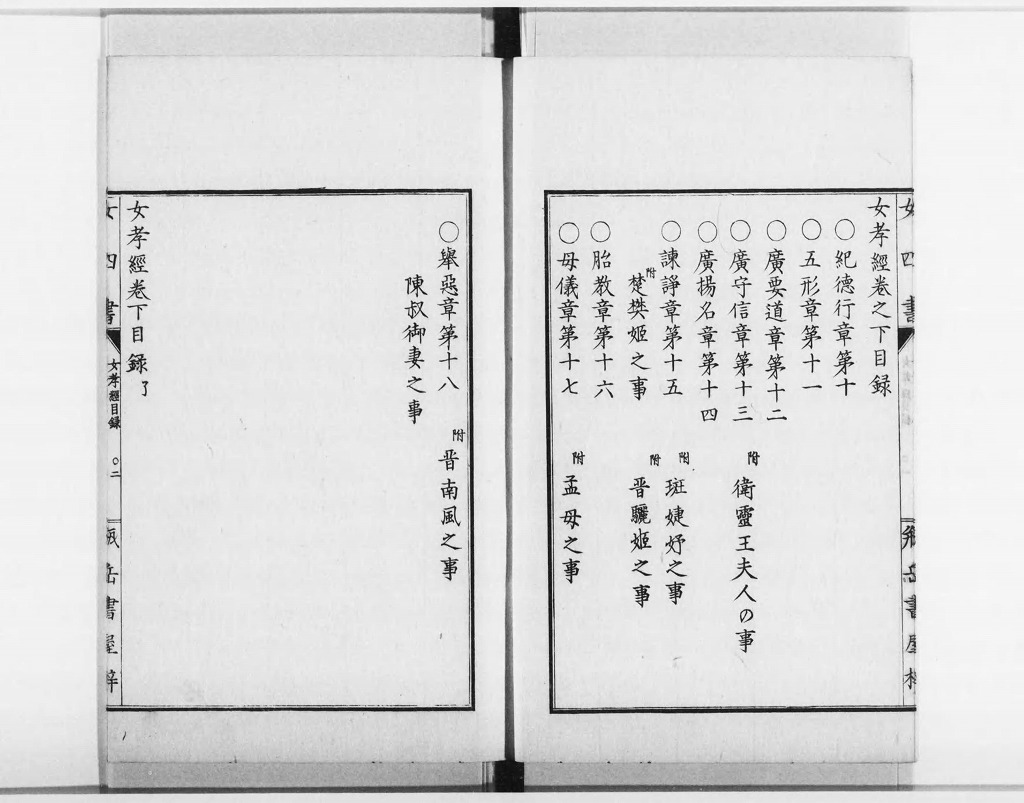 女孝經卷之下目録
○紀德行章第十
○五形章第十一
○廣要道章第十二
○廣守信章第十三 附 衛靈王夫人の事
○廣揚名章第十四
○諫諍章第十五 附 班婕妤之事
附 楚樊姬之事 附 晋驪姬之事
○胎教章第十六
○母儀章第十七 附 孟母之事
○舉惡章第十八 附 晋南風之事
陳叔御妻之事
女孝經卷下目録了
女四書
女孝經目録 ○二